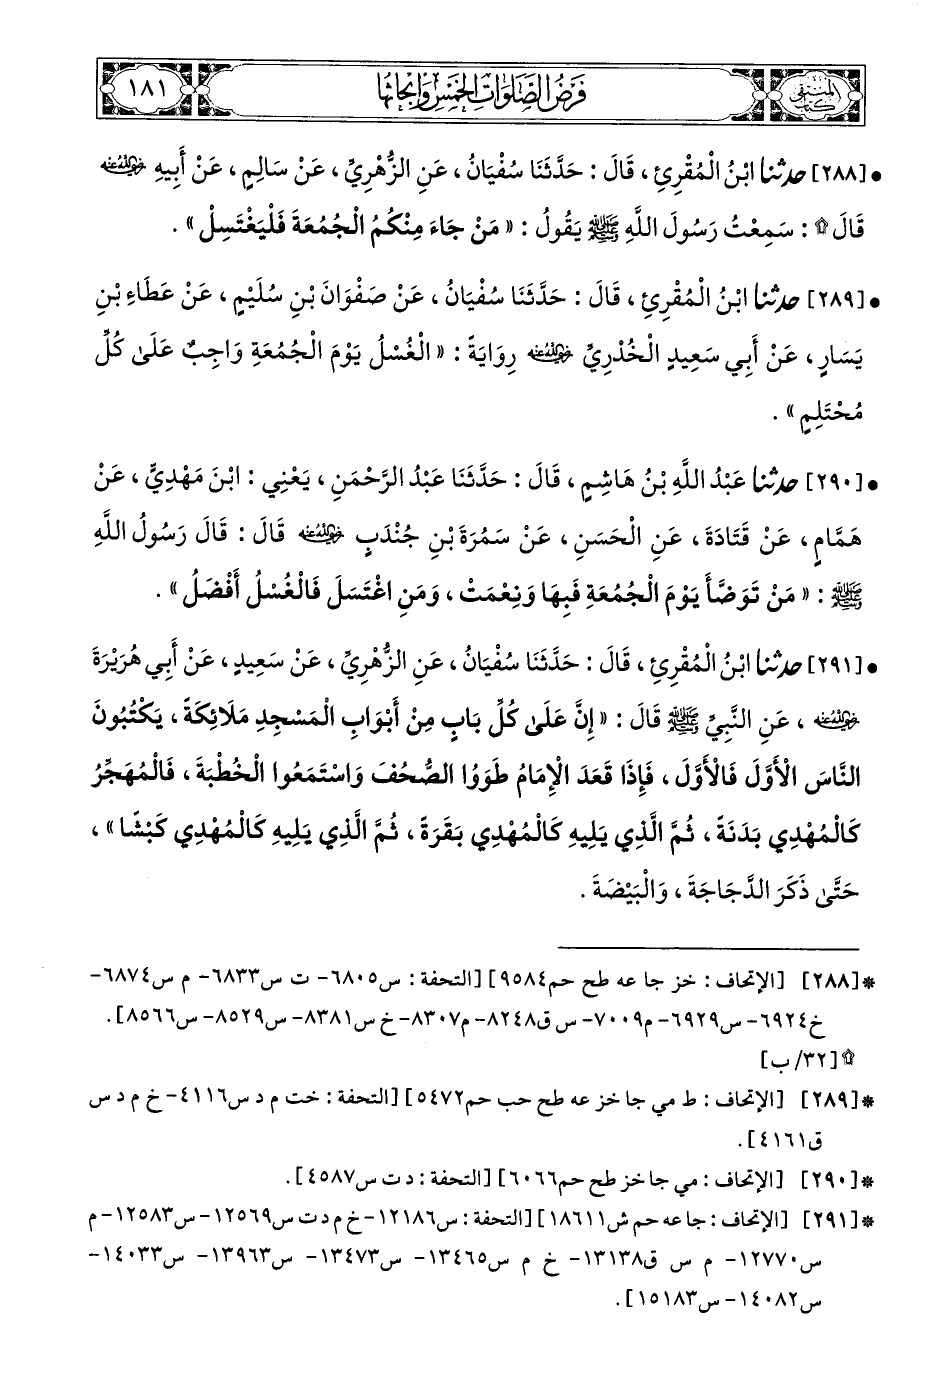 كتاب المنتقى
فرض الصلوات الخمس وأبحاثها
١٨١
• [٢٨٨] حدثنا ابْنُ الْمُقْرِئِ، قَالَ: حَدَّثَنَا سُفْيَانُ، عَنِ الزُّهْرِيِّ، عَنْ سَالِمٍ، عَنْ أَبِيهِ رضي الله عنه
قَالَ ۩: سَمِعْتُ رَسُولَ اللَّهِ ﷺ يَقُولُ: «مَنْ جَاءَ مِنْكُمُ الْجُمُعَةَ فَلْيَغْتَسِلْ».
• [٢٨٩] حدثنا ابْنُ الْمُقْرِئِ، قَالَ: حَدَّثَنَا سُفْيَانُ، عَنْ صَفْوَانَ بْنِ سُلَيْمٍ، عَنْ عَطَاءِ بْنِ
يَسَارٍ، عَنْ أَبِي سَعِيدٍ الْخُدْرِيِّ رضي الله عنه رِوَايَةً: «الْغُسْلُ يَوْمَ الْجُمُعَةِ وَاجِبٌ عَلَىٰ كُلِّ
مُحْتَلِمٍ».
• [٢٩٠] حدثنا عَبْدُ اللَّهِ بْنُ هَاشِمٍ، قَالَ: حَدَّثَنَا عَبْدُ الرَّحْمَنِ، يَعْنِي: ابْنَ مَهْدِيٍّ، عَنْ
هَمَّامٍ، عَنْ قَتَادَةَ، عَنِ الْحَسَنِ، عَنْ سَمُرَةَ بْنِ جُنْدَبٍ رضي الله عنه قَالَ: قَالَ رَسُولُ اللَّهِ
ﷺ: «مَنْ تَوَضَّأَ يَوْمَ الْجُمُعَةِ فَبِهَا وَنِعْمَتْ، وَمَنِ اغْتَسَلَ فَالْغُسْلُ أَفْضَلُ».
• [٢٩١] حدثنا ابْنُ الْمُقْرِئِ، قَالَ: حَدَّثَنَا سُفْيَانُ، عَنِ الزُّهْرِيِّ، عَنْ سَعِيدٍ، عَنْ أَبِي هُرَيْرَةَ
رضي الله عنه، عَنِ النَّبِيِّ ﷺ قَالَ: «إِنَّ عَلَىٰ كُلِّ بَابٍ مِنْ أَبْوَابِ الْمَسْجِدِ مَلَائِكَةً، يَكْتُبُونَ
النَّاسَ الْأَوَّلَ فَالْأَوَّلَ، فَإِذَا قَعَدَ الْإِمَامُ طَوَوُا الصُّحُفَ وَاسْتَمَعُوا الْخُطْبَةَ، فَالْمُهَجِّرُ
كَالْمُهْدِي بَدَنَةً، ثُمَّ الَّذِي يَلِيهِ كَالْمُهْدِي بَقَرَةً، ثُمَّ الَّذِي يَلِيهِ كَالْمُهْدِي كَبْشًا»،
حَتَّىٰ ذَكَرَ الدَّجَاجَةَ، وَالْبَيْضَةَ.
* [٢٨٨] [الإتحاف: خز جا عه طح حم ٩٥٨٤] [التحفة: س ٦٨٠٥- ت س ٦٨٣٣- م س ٦٨٧٤-
خ ٦٩٢٤- س ٦٩٢٩- م ٧٠٠٩- س ق ٨٢٤٨- م ٨٣٠٧- خ س ٨٣٨١- س ٨٥٢٩- س ٨٥٦٦].
۩ [٣٢/ ب]
* [٢٨٩] [الإتحاف: ط مي جا خز عه طح حب حم ٥٤٧٢] [التحفة: خت م د س ٤١١٦- خ م د س
ق ٤١٦١].
* [٢٩٠] [الإتحاف: مي جا خز طح حم ٦٠٦٦] [التحفة: د ت س ٤٥٨٧].
* [٢٩١] [الإتحاف: جا عه حم ش ١٨٦١١] [التحفة: س ١٢١٨٦- خ م د ت س ١٢٥٦٩- س ١٢٥٨٣- م
س ١٢٧٧٠- م س ق ١٣١٣٨- خ م س ١٣٤٦٥- س ١٣٤٧٣- س ١٣٩٦٣- س ١٤٠٣٣-
س ١٤٠٨٢- س ١٥١٨٣].